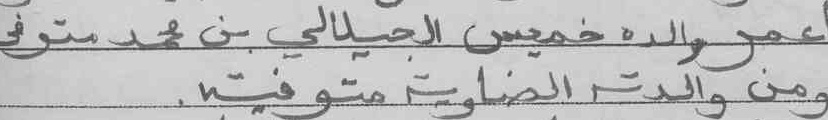 اعمر والده خميس الجيلالي بن محمد متوفى
ومن والدته الضاوية متوفية.